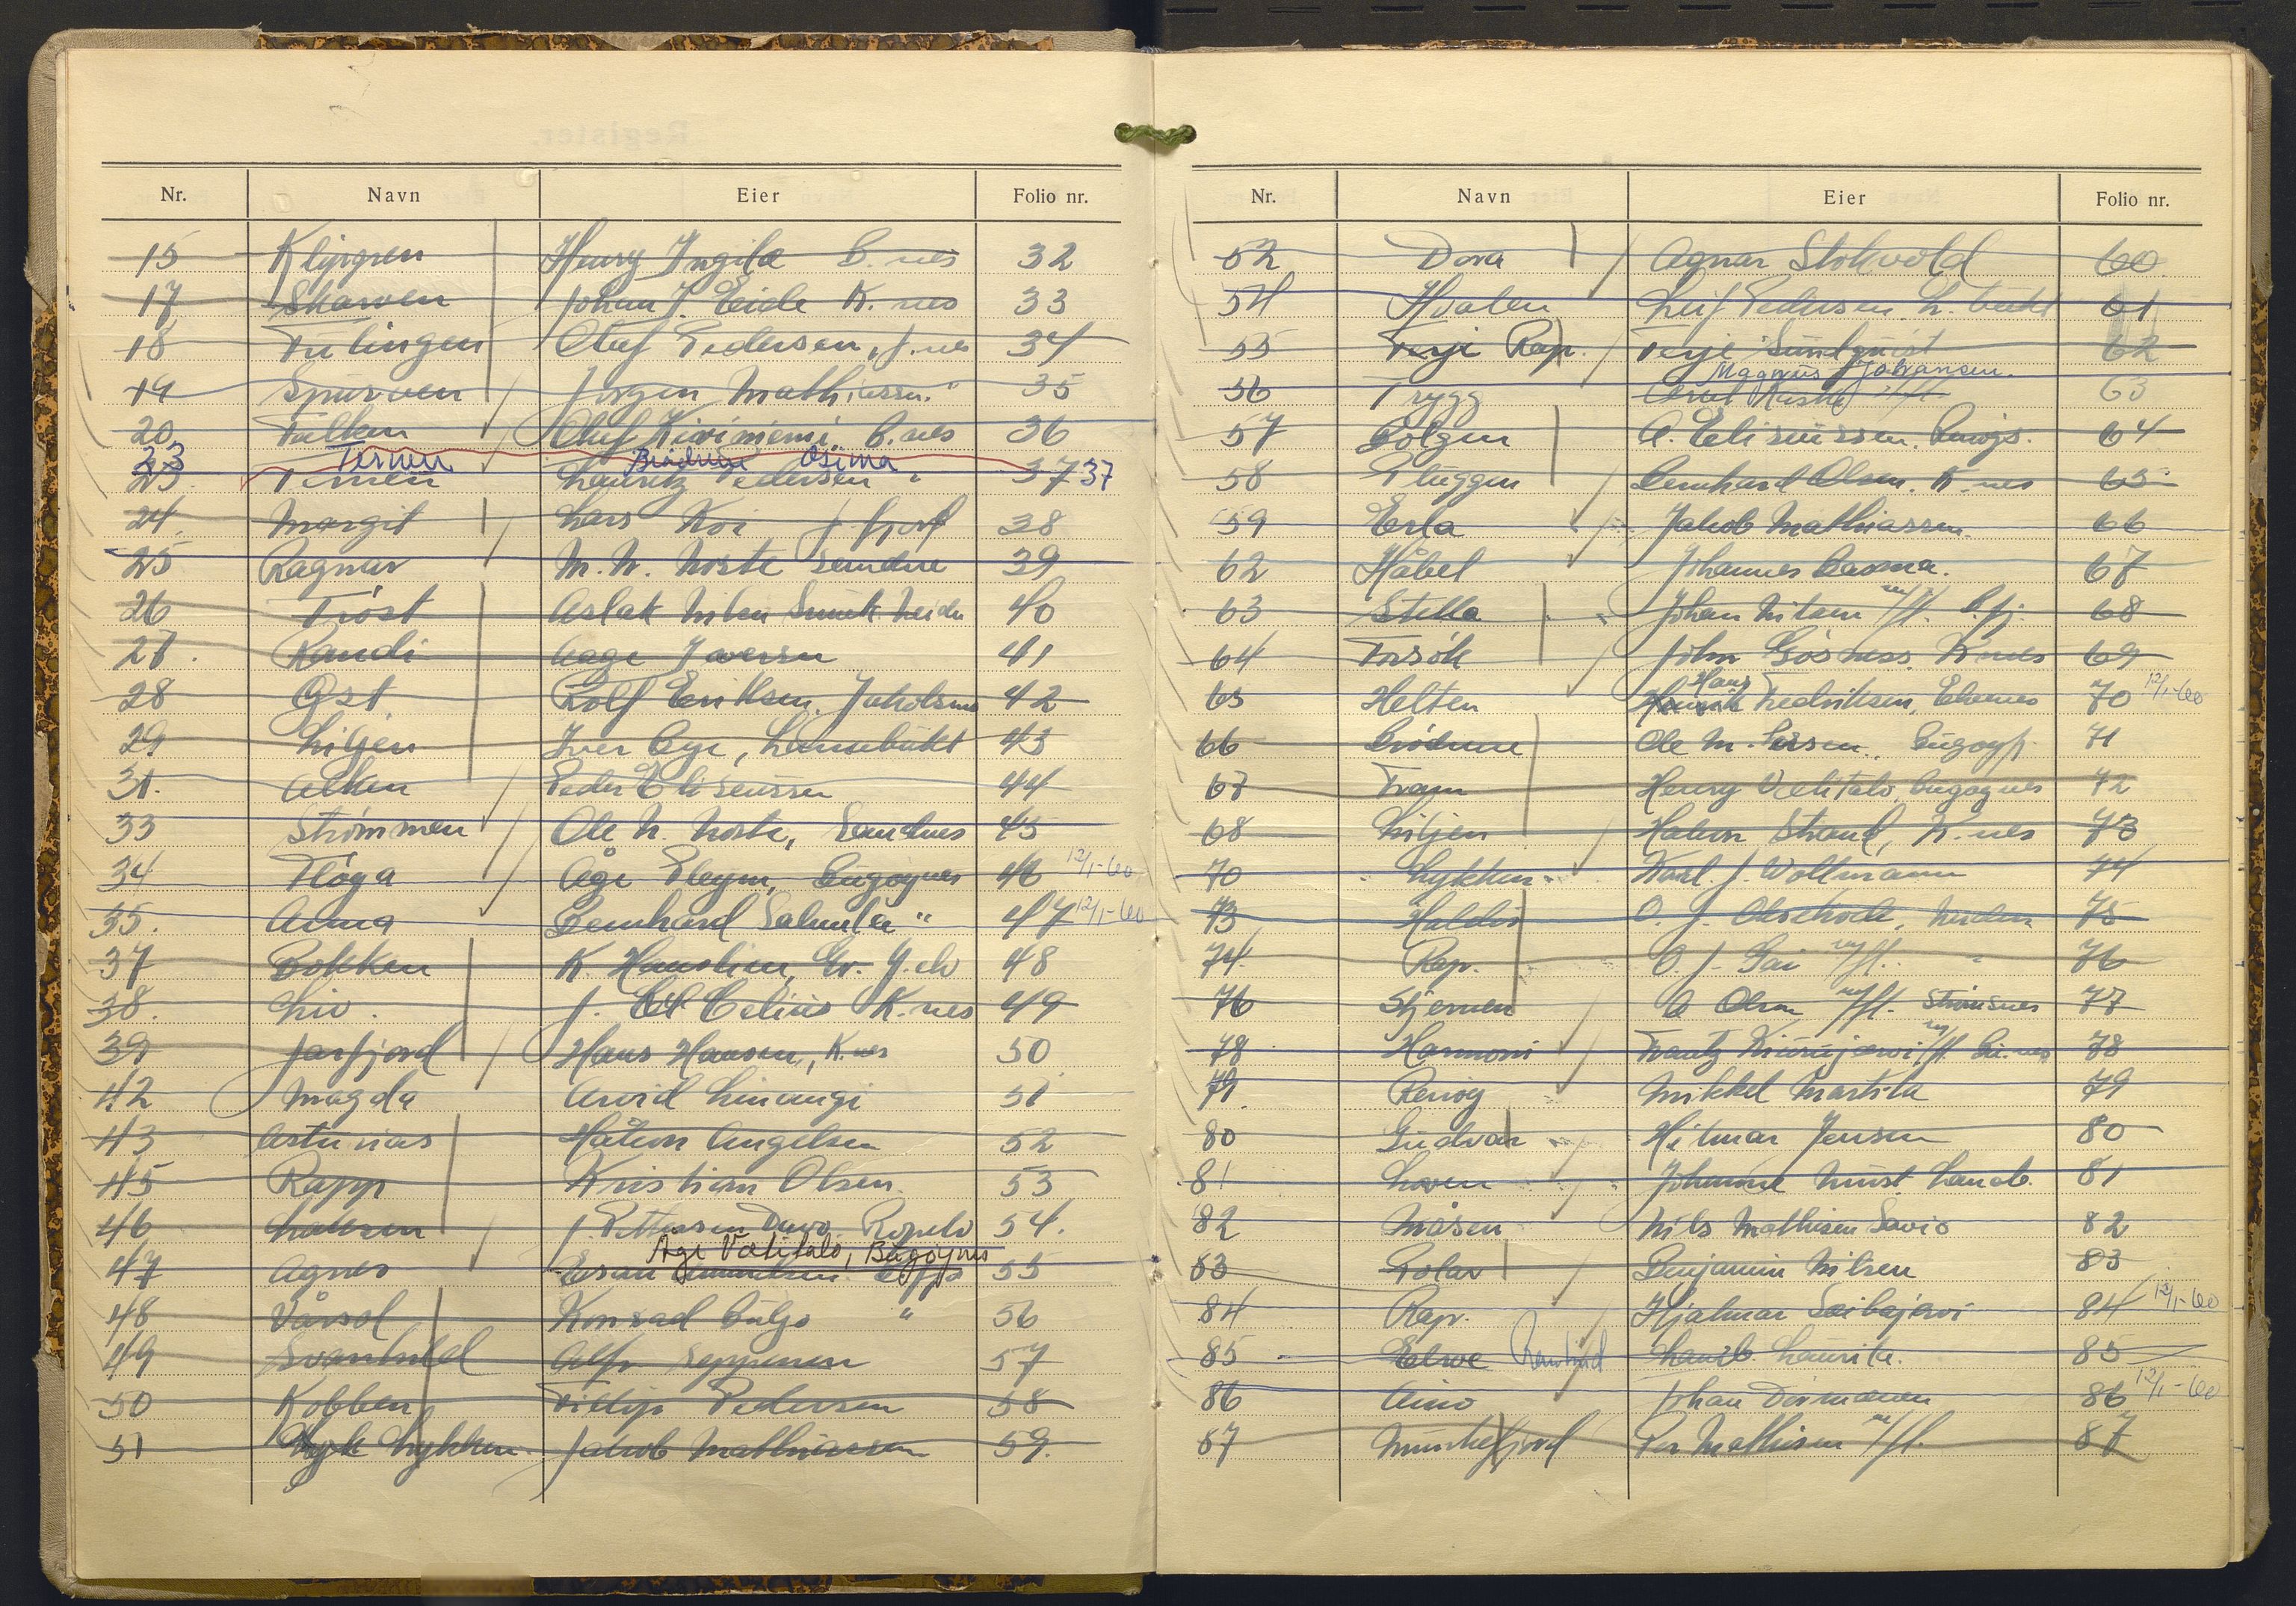 Nr. Navn Eier Folio nr.
15 Klyrgren Henry Ingilæ B. nes 32
17 Skarven Johan J. Eide K. nes 33
18 Tulingen Oluf Pedersen, J. nes 34
19 Spurven Jørgen Mathiassen " 35
20 Falken Oluf Kiviniemi B. nes 36
23 Ternen Brødrene Osima 37
23. Ternen Lauritz Pedersen " 37
24. Margit Lars Koi J. fjord 38
25 Ragnar M. N. Noste Sandnes 39
26 Trøst Aslak Nilsen Neiden 40
27. Kandi Aage Iversen 41
28 Øst Rolf Eriksen, Jakobsnes 42
29 Liljen Iver Bye, Lanabukt 43
31. Alken Peder Eliseussen 44
33 Strømmen Ole N. Noste, Sandnes 45
34 Fløga Åge Bugøynes 46 12/1-60
35. Anna Bernhard Salmela " 47 12/1-60
37 Bokken K. Hauolien, Gr. J. elv 48
38. Liv. J. Celius K. nes 49
39 Jarfjord Hans Hansen, K. nes 50
42 Magda Arvid Linangi 51
43 Asturias Håkon Angelsen 52
45 Rapp Kristian Olsen 53
46 Laksen J. Pettersen 54.
Åge Vælitalo, Bugøynes
47 Agnes 55
48 Vårsol Konrad Buljo " 56
49 Svanhild Alfr. Seppänen 57
50 Kobben Fillip Pedersen 58
51 Lykken Jakob Mathiassen 59.
Nr. Navn Eier Folio nr.
52 Dora Agnar Stokvold 60
54 Hvalen Leif Pedersen, L. bukt 61
55 Terje Rap. Terje Sundquist 62
Magnus Johansen.
56 Trygg 63
57 Bølgen A. Eliseussen, 64
58 Pluggen Bernhard Olsen, K. nes 65
59 Erla Jakob Mathiassen. 66
62 Håbet Johannes 67
63 Stella Johan Nilsen m/fl. B. fj. 68
64 Forsøk John Gøsness, K. nes 69
65 Helten Hans Fredriksen, Ekenes 70 12/1-60
66 Brødrene Ole M. Persen, Bugøyfj. 71
67 Fram Henry Vælitalo, Bugøynes 72
68 Liljen Halvor Strand, K. nes 73
70 Lykken Karl J. Woltmann 74
73 Haldis O. J. Neiden 75
74. Rap. O. J. Sai m/fl. " 76
76 Stjernen O Olsen m/fl. Strømsnes 77
78 Harmoni Frantz m/fl. Bu.nes 78
79. Renøg Mikkel Martila 79
80 Gudvar Hilmar Jensen 80
81 Loven Johanne Must Lanab. 81
82 Måsen Nils Mathisen Savio 82
83 Polar Benjamin Nilsen 83
84 Rap. Hjalmar Saibajærvi 84 12/1-60
85 Elwe Lanab. Laurila. 85
86 Aino Johan Dørmænen 86 12/1-60
87 Munkefjord Per Mathisen m/fl. 87